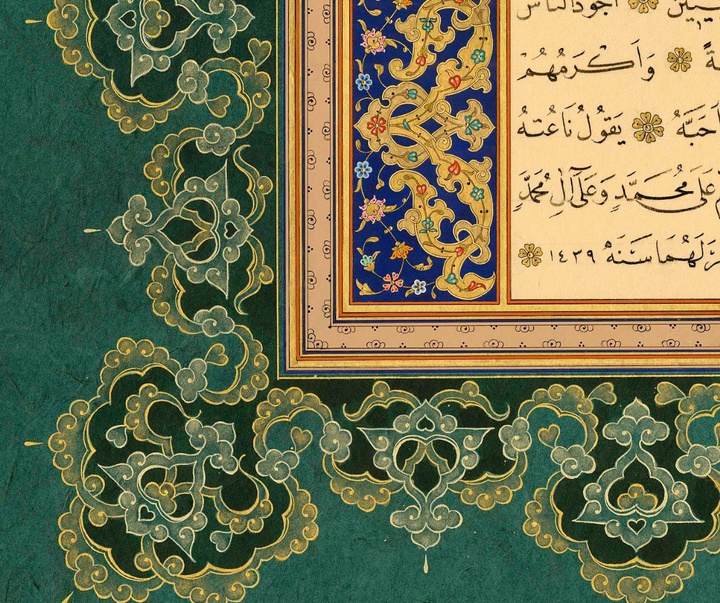 أجود الناس
وَأَكْرَمُهُمْ
أَحَبَّهُ يَقُولُ نَاعِتُهُ
عَلَى مُحَمَّدٍ وَعَلَى آلِ مُحَمَّدٍ
لَهُمَا سَنَة ١٤٣٩